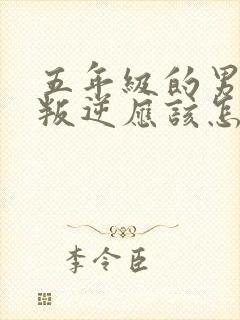 五年级的男
叛逆应该怎
李令臣